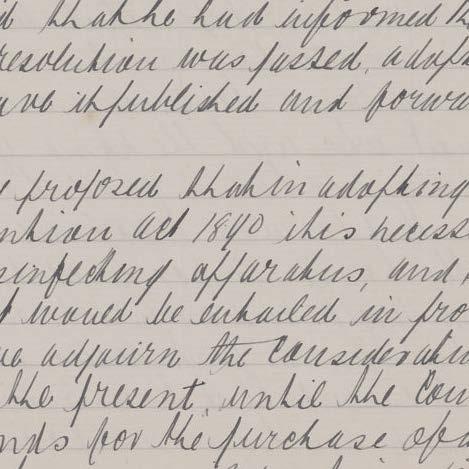 that he had informed the
resolution was passed, adopt
ave it published and forwa
proposed that in adopting
ntion Act 1890 it is necess
sinfecting apparatus, and
would be entailed in pro
adjourn the consideration
the present, until the Coun
nds for the purchase of a